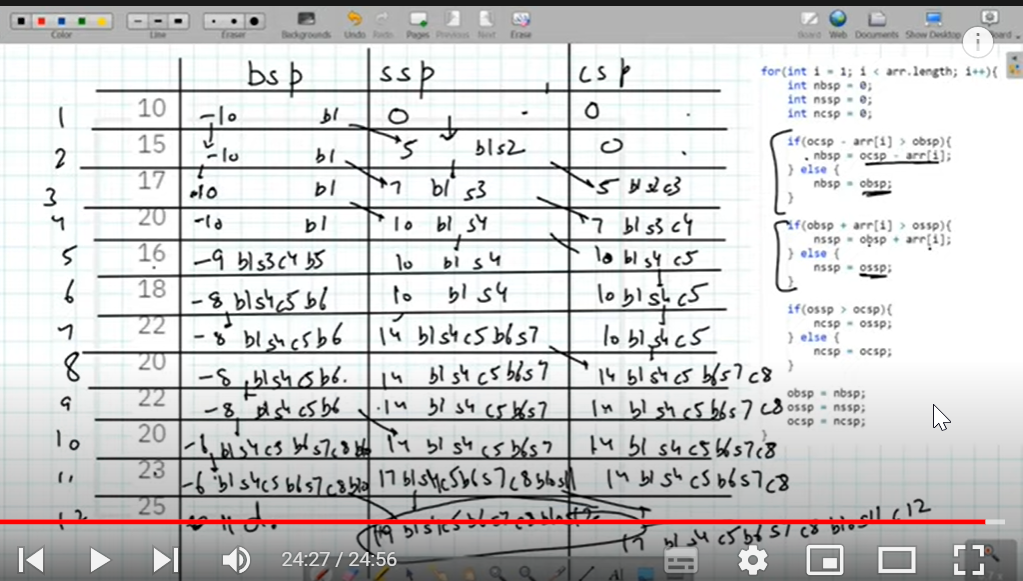 Color Line Eraser Backgrounds Undo Redo Pages Previous Next Erase Board Web Documents Show Desktop Board
bsp ssp csp
1 10 -10 b1 0 0
2 15 -10 b1 5 b1s2 0
3 17 -10 b1 7 b1 s3 5 b1s2c3
4 20 -10 b1 10 b1 s4 7 b1s3c4
5 16 -9 b1s3c4 b5 10 b1 s4 10 b1 s4 c5
6 18 -8 b1s4c5b6 10 b1 s4 10 b1 s4 c5
7 22 -8 b1s4c5b6 14 b1s4c5b6s7 10 b1 s4 c5
8 20 -8 b1s4c5b6. 14 b1 s4 c5 b6s7 14 b1 s4 c5 b6s7 c8
9 22 -8 b1s4c5b6 14 b1 s4 c5 b6s7 14 b1 s4 c5 b6s7 c8
10 20 -6 b1s4c5 b6s7c8b10 14 b1 s4 c5 b6s7 14 b1 s4 c5 b6s7c8
11 23 -6 b1s4c5 b6s7c8b10 17 b1s4c5b6s7c8b10s11 14 b1 s4 c5 b6s7c8
12 25 17 b1 s4 c5 b6 s7 c8 b10s11 c12
for(int i = 1; i < arr.length; i++){
int nbsp = 0;
int nssp = 0;
int ncsp = 0;
if(ocsp - arr[i] > obsp){
nbsp = ocsp - arr[i];
} else {
nbsp = obsp;
}
if(obsp + arr[i] > ossp){
nssp = obsp + arr[i];
} else {
nssp = ossp;
}
if(ossp > ocsp){
ncsp = ossp;
} else {
ncsp = ocsp;
}
obsp = nbsp;
ossp = nssp;
ocsp = ncsp;
}
24:27 / 24:56